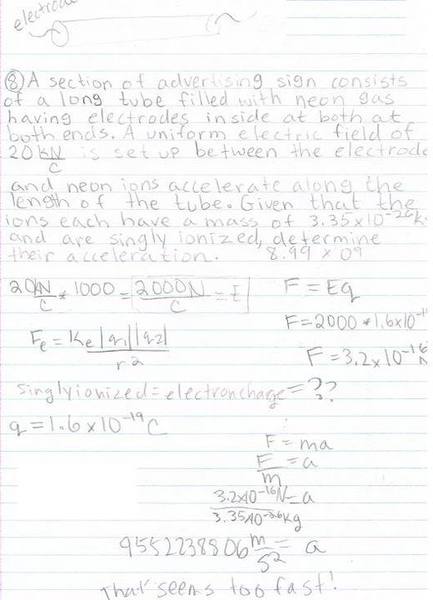 electrode
⑧ A section of advertising sign consists
of a long tube filled with neon gas
having electrodes inside at both at
both ends. A uniform electric field of
20 kN/C is set up between the electrode
and neon ions accelerate along the
length of the tube. Given that the
ions each have a mass of 3.35x10^-26 k
and are singly ionized, determine
their acceleration. 8.99 x 09
20 kN/C * 1000 = 2000N/C = E F = Eq
F = 2000 * 1.6x10^-1
Fe = Ke |q1||q2| / r2
F = 3.2x10^-16 N
Singly ionized = electron charge = ??
q = 1.6x10^-19 C
F = ma
F/m = a
3.2x10^-16 N / 3.35x10^-26 kg = a
9552238806 m/s^2 = a
That seems too fast!